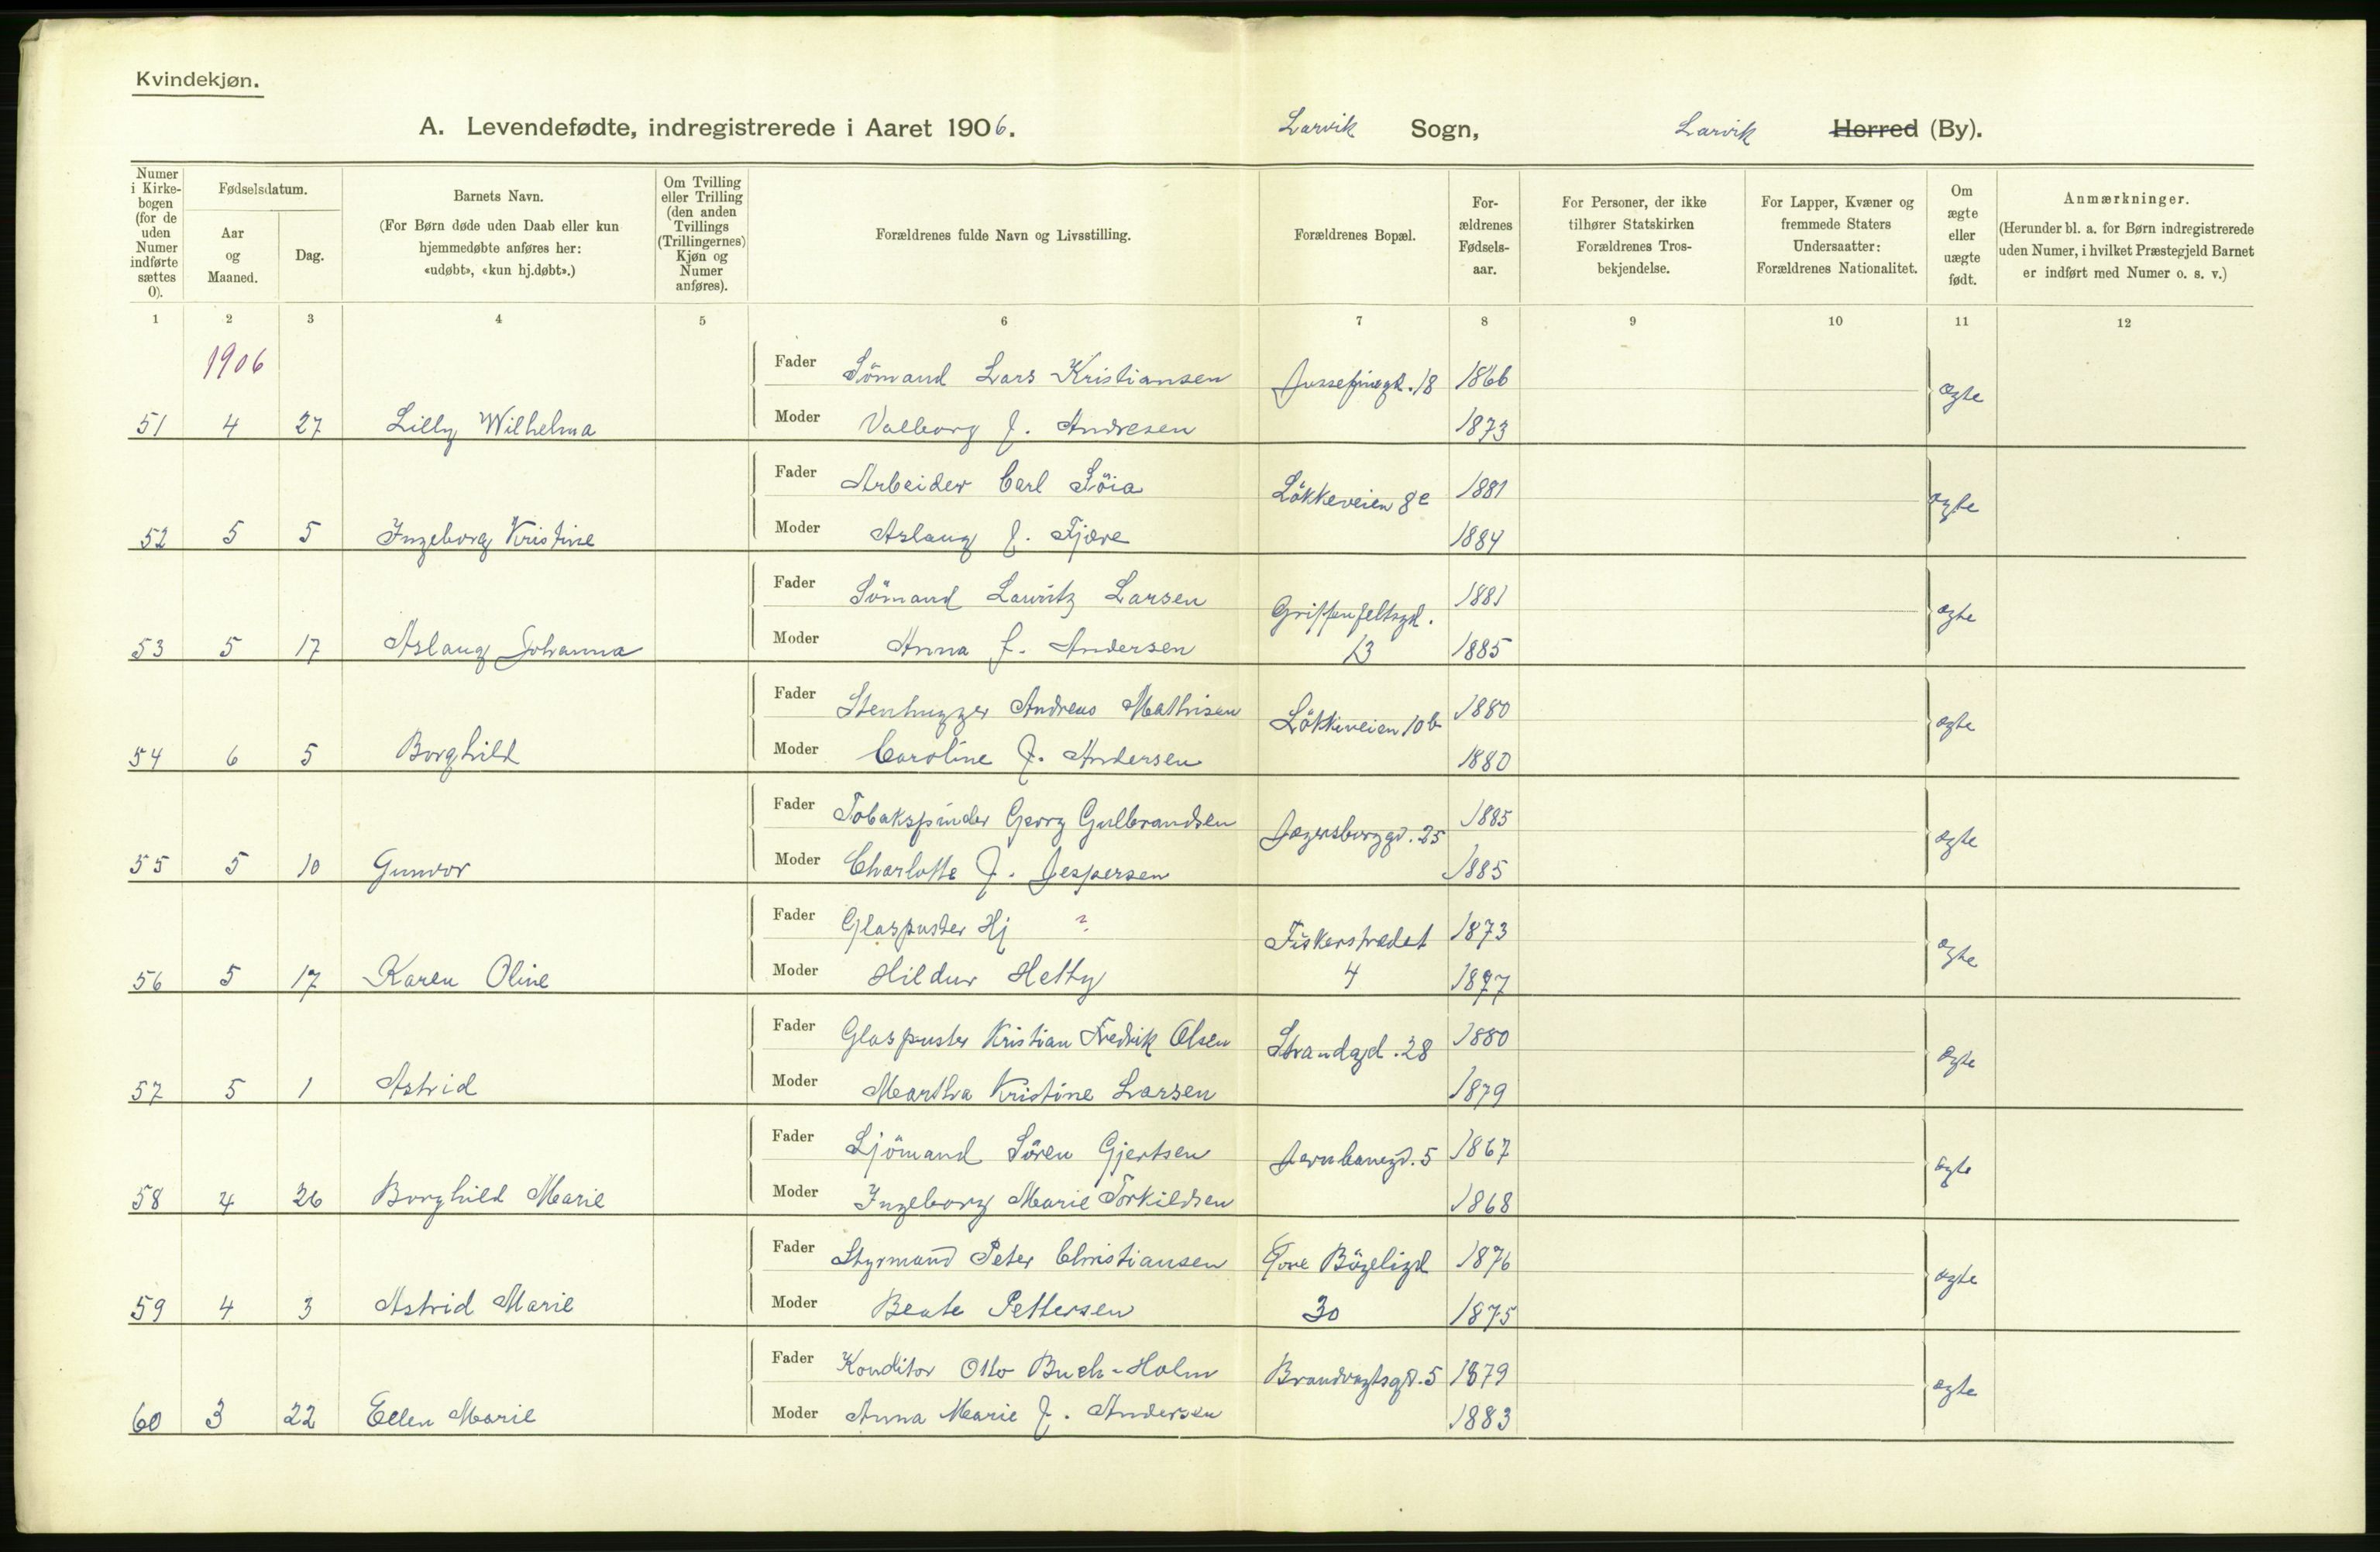 Kvindekjøn.
A. Levendefødte, indregistrerede i Aaret 1906. Larvik Sogn, Larvik Herred (By).
Numer i Kirke-bogen (for de uden Numer indførte sættes 0).
Fødselsdatum.
Aar og Maaned.
Dag.
Barnets Navn.
(For Børn døde uden Daab eller kun hjemmedøbte anføres her: «udøbt», «kun hj.døbt».)
Om Tvilling eller Trilling (den anden Tvillings (Trillingernes) Kjøn og Numer anføres).
Forældrenes fulde Navn og Livsstilling.
Forældrenes Bopæl.
For-ældrenes Fødsels-aar.
For Personer, der ikke tilhører Statskirken Forældrenes Tros-bekjendelse.
For Lapper, Kvæner og fremmede Staters Undersaatter: Forældrenes Nationalitet.
Om ægte eller uægte født.
Anmærkninger.
(Herunder bl. a. for Børn indregistrerede uden Numer, i hvilket Præstegjeld Barnet er indført med Numer o. s. v.)
1 2 3 4 5 6 7 8 9 10 11 12
1906
Fader Sömand Lars Kristiansen 18 1866 ægte
51 4 27 Lilly Wilhelma Moder Valborg f. Andresen 1873
Fader Arbeider Carl Söia Lökkeveien 8c 1881 ægte
52 5 5 Ingeborg Kristine Moder Aslaug f. Fjære 1884
Fader Sömand Lauritz Larsen Griffenfeltsgd. 1881 ægte
53 5 17 Aslaug Johanna Moder Anna f. Andersen 13 1885
Fader Stenhugger Andreas Mathisen Lökkeveien 10b 1880 ægte
54 6 5 Borghild Moder Caroline f. Andersen 1880
Fader Tobakspinder Georg Gulbrandsen Jegersborggd. 25 1885 ægte
55 5 10 Gunvor Moder Charlotte f. Jespersen 1885
Fader Glaspuster Hj ? Fiskerstrædet 1873 ægte
56 5 17 Karen Oline Moder Hildur Hetty 4 1877
Fader Glaspuster Kristian Fredrik Olsen Strandgd. 28 1880 ægte
57 5 1 Astrid Moder Martha Kristine Larsen 1879
Fader Sjömand Sören Gjertsen Jernbanegd. 5 1867 ægte
58 4 26 Borghild Marie Moder Ingeborg Marie Torkildsen 1868
Fader Styrmand Peter Christiansen Bögeligd 1876 ægte
59 4 3 Astrid Marie Moder Beate Pettersen 30 1875
Fader Konditor Otto Buch-Holm Brandvagtsgd. 5 1879 ægte
60 3 22 Ellen Marie Moder Anna Marie f. Andersen 1883